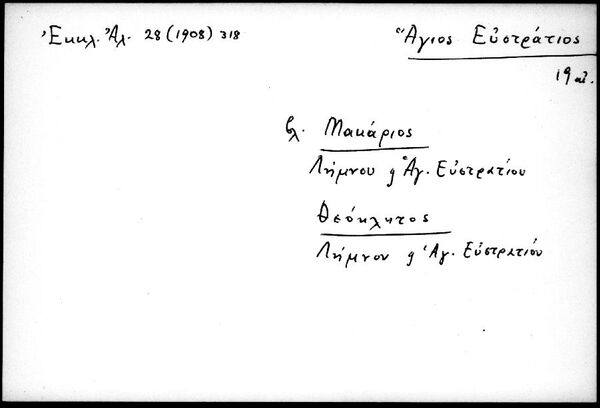 Ἐκκλ. Ἀλ. 28 (1908) 318
Ἅγιος Εὐστράτιος
19 αἰ.
βλ. Μακάριος
Λήμνου & Ἁγ. Εὐστρατίου
Θεόκλητος
Λήμνου & Ἁγ. Εὐστρατίου